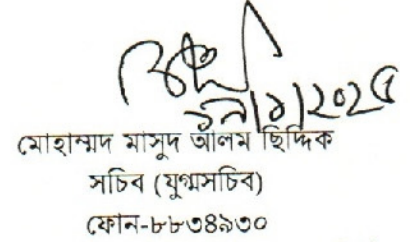 মোহাম্মদ মাসুদ আলম ছিদ্দিক
সচিব (যুগ্মসচিব)
ফোন-৮৮৩৪৯৩০